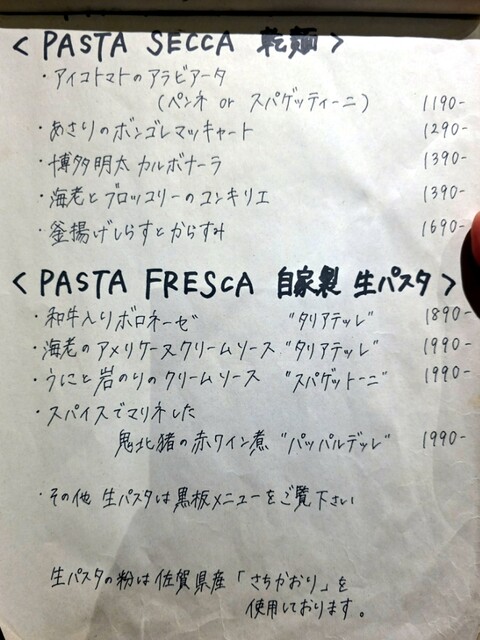 < PASTA SECCA 乾麺 >
・アイコトマトのアラビアータ
(ペンネ or スパゲッティーニ) 1190-
・あさりのボンゴレマッキャート 1290-
・博多明太カルボナーラ 1390-
・海老とブロッコリーのコンキリエ 1390-
・釜揚げしらすとからすみ 1690-
< PASTA FRESCA 自家製 生パスタ >
・和牛入りボロネーゼ "タリアテッレ" 1890-
・海老のアメリケーヌクリームソース "タリアテッレ" 1990-
・うにと岩のりのクリームソース "スパゲットーニ" 1990-
・スパイスでマリネした
鬼北猪の赤ワイン煮 "パッパルデッレ" 1990-
・その他 生パスタは黒板メニューをご覧下さい
生パスタの粉は佐賀県産「さちかおり」を
使用しております。